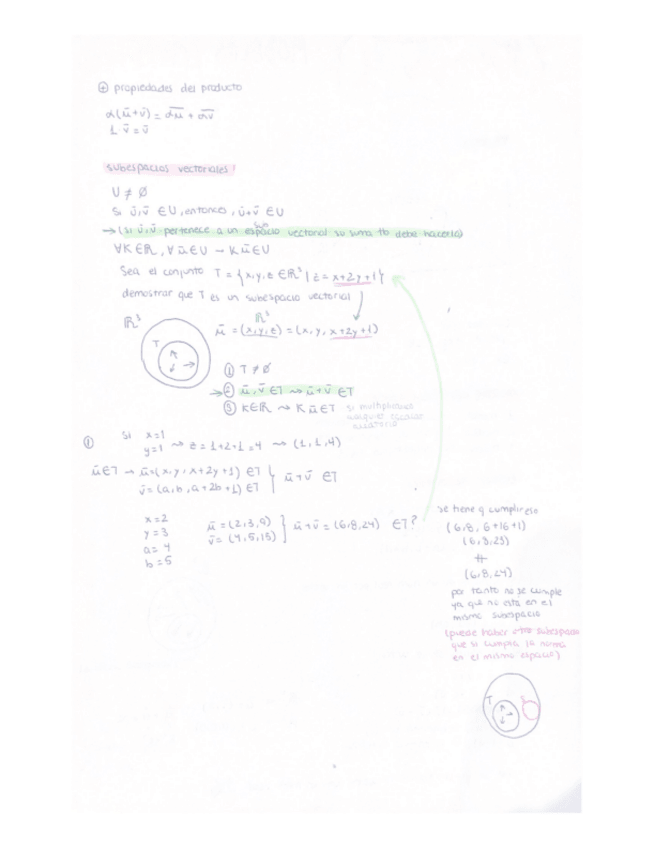 ⊕ propiedades del producto
α(ū+v̄) = αū + αv̄
1·v̄ = v̄
subespacios vectoriales
U ≠ ∅
si ū,v̄ ∈ U, entonces, ū+v̄ ∈ U
→ (si ū,v̄ pertenece a un sub espacio vectorial su suma tb debe hacerlo)
∀K∈ℝ, ∀ū∈U → Kū∈U
Sea el conjunto T = {x,y,z ∈ ℝ³ | z = x+2y+1}
demostrar que T es un subespacio vectorial
ℝ³
T
ℝ³
ū = (x,y,z) = (x, y, x+2y+1)
① T ≠ ∅
→ ② ū, v̄ ∈ T ⇝ ū+v̄ ∈ T
③ K∈ℝ ⇝ Kū∈T
si multiplicamos
① si x=1
y=1 ⇝ z = 1+2+1 = 4 ⇝ (1,1,4)
ū∈T → ū=(x,y,x+2y+1) ∈T
v̄=(a,b,a+2b+1) ∈T } ū+v̄ ∈T
x=2
y=3
a=4
b=5
ū=(2,3,9)
v̄=(4,5,15) } ū+v̄ = (6,8,24) ∈T?
se tiene q cumplir eso
(6,8,6+16+1)
(6,8,23)
≠
(6,8,24)
por tanto no se cumple
ya que no esta en el
mismo subespacio
(puede haber otro subespacio
que si cumpla la norma
en el mismo espacio)
T